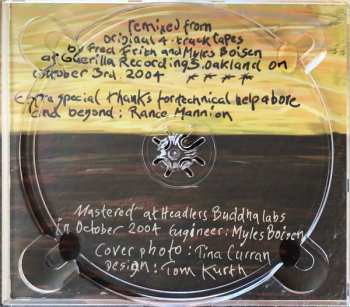 remixed from
original 4-track tapes
by Fred Frith and Myles Boisen
at Guerilla Recordings. Oakland on
October 3rd. 2004 ****
extra special thanks for technical help above
and beyond: Rance Mannion
Mastered at Headless Buddha labs
in October 2004 Engineer: Myles Boisen
Cover photo: Tina Curran
Design: Tom Kurth